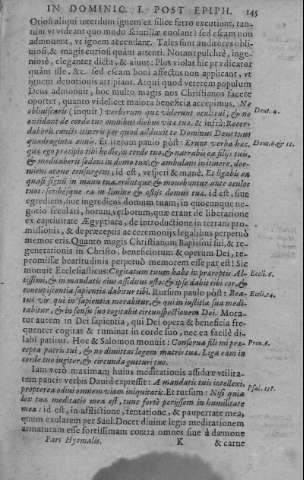 IN DOMINIC. I. POST EPIPH. 145
Otiosi aliqui lucendum ignem ex silice ferro excutiunt, tan-
tum vt videant quo modo scintillæ euolant: sed escam non
admouent, vt ignem accendant. Tales sunt auditores
otiosi, & magis curiosi quàm attenti. Notant pulchrè, inge-
niosè, eleganter dicta, & aiunt: Plus vtolat hic prædicator
quàm ille, &c. sed escam boni affectus non applicant, vt
ignem deuotionis accipiant. Acqui quod veterem populum
Deus admonuit, hoc multo magis nos Christianos facere
oportet, quanto videlicet maiora beneficia accepimus. Ne
obliuiscaris (inquit) verborum quæ viderunt oculi tui, & ne Deut. 4.
excidant de corde tuo omnibus diebus vitæ tuæ. & infrà: Recor-
daberis cuncti itineris per quod adduxit te Dominus Deus tuus
quadraginta annis. Et iterum paulò pòst: Erunt verba hæc, Deut. 6. & 11.
quæ ego præcipio tibi hodie, in corde tuo, & narrabis ea filijs tuis,
& meditaberis sedens in domo tua, & ambulans in itinere, dor-
miens atque consurgens, id est, vesperi & mane. Et ligabis ea
quasi signum in manu tua, eruntque & mouebuntur ante oculos
tuos: scribesque ea in limine & ostijs domus tuæ. id est, siue
egrediens, siue ingrediens domum tuam, in quocunque ne-
gotio seculari, horum verborum, quæ erant de liberatione
ex captiuitate Ægyptiaca, de introductione in terram pro-
missionis, & de præceptis ac ceremonijs legalibus perpetuò
memor eris. Quanto magis Christianum Baptismi sui, & re-
generationis in Christo, beneficiorum & operum Dei, re-
promissæ beatitudinis perpetuò memorem esse par est? Sic
monuit Ecclesiasticus: Cogitatum tuum habe in præceptis Al- Eccli. 6.
tissimi, & in mandatis eius assiduus esto: & ipse dabit tibi cor, &
concupiscentia sapientiæ dabitur tibi. Rursum paulò pòst: Bea- Eccli. 14.
tus vir qui in sapientia morabitur, & qui in iustitia sua medi-
tabitur, & in sensu suo cogitabit circunspectionem Dei. Mora-
tur autem in Dei sapientia, qui Dei opera & beneficia fre-
quenter cogitat & ruminat in corde suo, nec ea facilè di-
labi patitur. Hoc & Salomon monuit: Conserua fili mi præ- Prou. 6.
cepta patris tui, & ne dimittas legem matris tuæ. Liga eam in
corde tuo iugiter, & circunda gutturi tuo.
Iam verò maximam huius meditationis assiduæ vtilita-
tem paucis verbis Dauid expresse: A mandatis tuis intellexi,
propterea odiui omnem viam iniquitatis. Et rursum: Nisi quòd Psal. 118.
lex tua meditatio mea est, tunc fortè perijssem in humilitate
mea: id est, in afflictione, tentatione, & paupertate mea,
quum exularem per Saul. Docet diuinæ legis meditationem
armaturam esse fortissimam contra omnes siue à dæmone
Pars Hyemalis. K & carne